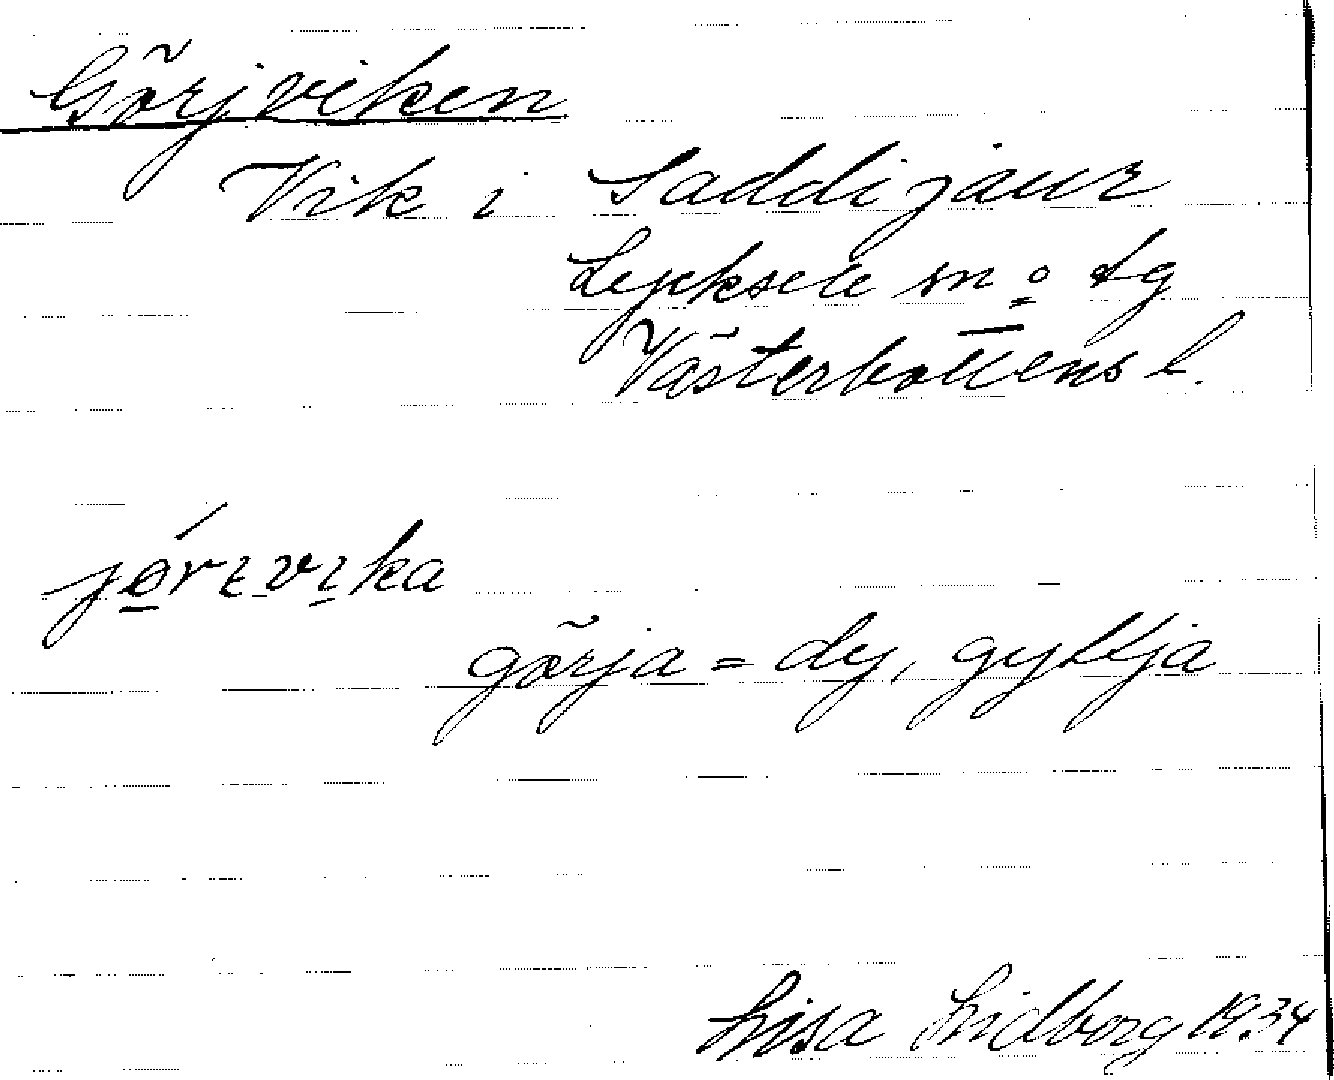 Görjviken
Vik i Saddijaur
Lycksele sn o tg
Västerbottens l.
görja = dy, gyttja
Lisa Lidborg 1934